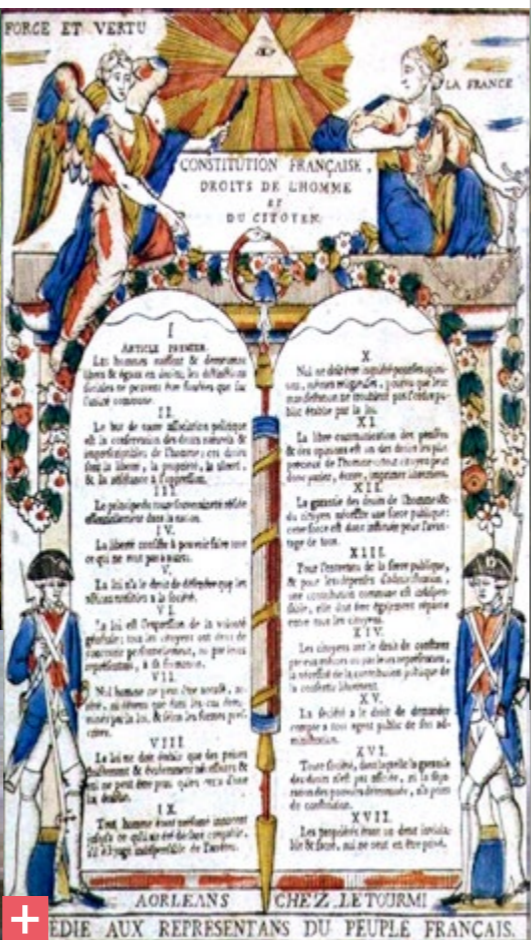 FORCE ET VERTU
LA FRANCE
CONSTITUTION FRANÇAISE,
DROITS DE L'HOMME
ET
DU CITOYEN.
I
ARTICLE PREMIER.
Les hommes naissent & demeurent
libres & égaux en droits, les distinctions
sociales ne peuvent être fondées que sur
l'utilité commune.
II.
Le but de toute association politique
est la conservation des droits naturels &
imprescriptibles de l'homme; ces droits
sont la liberté, la propriété, la sûreté,
& la résistance à l'oppression.
III.
Le principe de toute souveraineté réside
essentiellement dans la nation.
IV.
La liberté consiste à pouvoir faire tout
ce qui ne nuit pas à autrui.
V.
La loi n'a le droit de défendre que les
actions nuisibles à la société.
VI.
La loi est l'expression de la volonté
générale; tous les citoyens ont droit de
concourir personnellement, ou par leurs
représentans, à sa formation.
VII.
Nul homme ne peut être accusé,
arrêté, ni détenu que dans les cas
par la loi, & selon les formes
VIII.
La loi ne doit établir que des peines
strictement & évidemment nécessaires &
nul ne peut être puni qu'en vertu d'une
loi établie.
IX.
Tout homme étant présumé innocent
jusqu'à ce qu'il ait été déclaré coupable,
s'il est jugé indispensable de l'arrêter.
X
Nul ne doit être inquiété pour ses opinions,
mêmes religieuses, pourvu que leur
manifestation ne trouble pas l'ordre
public établie par la loi.
XI.
La libre communication des pensées
& des opinions est un des droits les plus
précieux de l'homme: tout citoyen peut
donc parler, écrire, imprimer librement.
XII.
La garantie des droits de l'homme &
du citoyen nécessite une force publique:
cette force est donc instituée pour l'avantage
de tous.
XIII.
Pour l'entretien de la force publique,
& pour les dépenses d'administration,
une contribution commune est indispensable,
elle doit être également répartie
entre tous les citoyens.
XIV.
Les citoyens ont le droit de constater
par eux mêmes ou par leurs représentans,
la nécessité de la contribution publique de
la consentir librement.
XV.
La société a le droit de demander
compte à tout agent public de son
administration.
XVI.
Toute société, dans laquelle la garantie
des droits n'est pas assurée, ni la séparation
des pouvoirs déterminée, n'a point
de constitution.
XVII.
Les propriétés étant un droit inviolable
& sacré, nul ne peut en être privé.
A ORLEANS CHEZ LETOURMI
ÉDIE AUX REPRESENTANS DU PEUPLE FRANÇAIS.